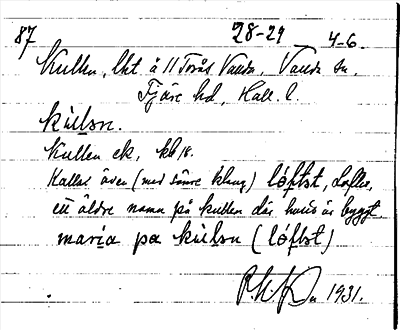 87 28-29 4-6.
Kullen, lht å 11 Torås Valda, Valda sn,
Fjäre hd, Hall. l.
kulsn.
Kullen ek, kbr.
Kallas även (med sämre klang) löftst, Loftet,
ett äldre namn på kullen där huset är byggt
maria pa kulsn (löftst)
1931.